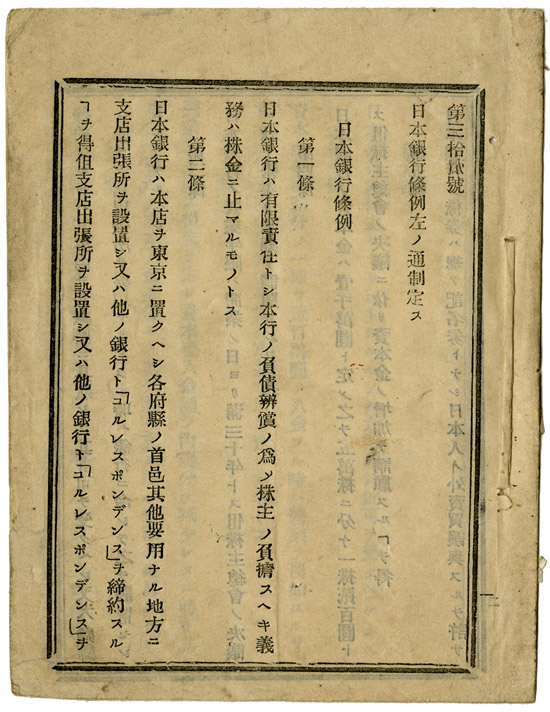 第三拾貳號
日本銀行條例左ノ通制定ス
日本銀行條例
第一條
日本銀行ハ有限責任トシ本行ノ負債辨償ノ爲メ株主ノ負擔スヘキ義
務ハ株金ニ止マルモノトス
第二條
日本銀行ハ本店ヲ東京ニ置クヘシ各府縣ノ首邑其他要用ナル地方ニ
支店出張所ヲ設置シ又ハ他ノ銀行ト「コルレスポンデンス」ヲ締約スル
ヿヲ得但支店出張所ヲ設置シ又ハ他ノ銀行ト「コルレスポンデンス」ヲ